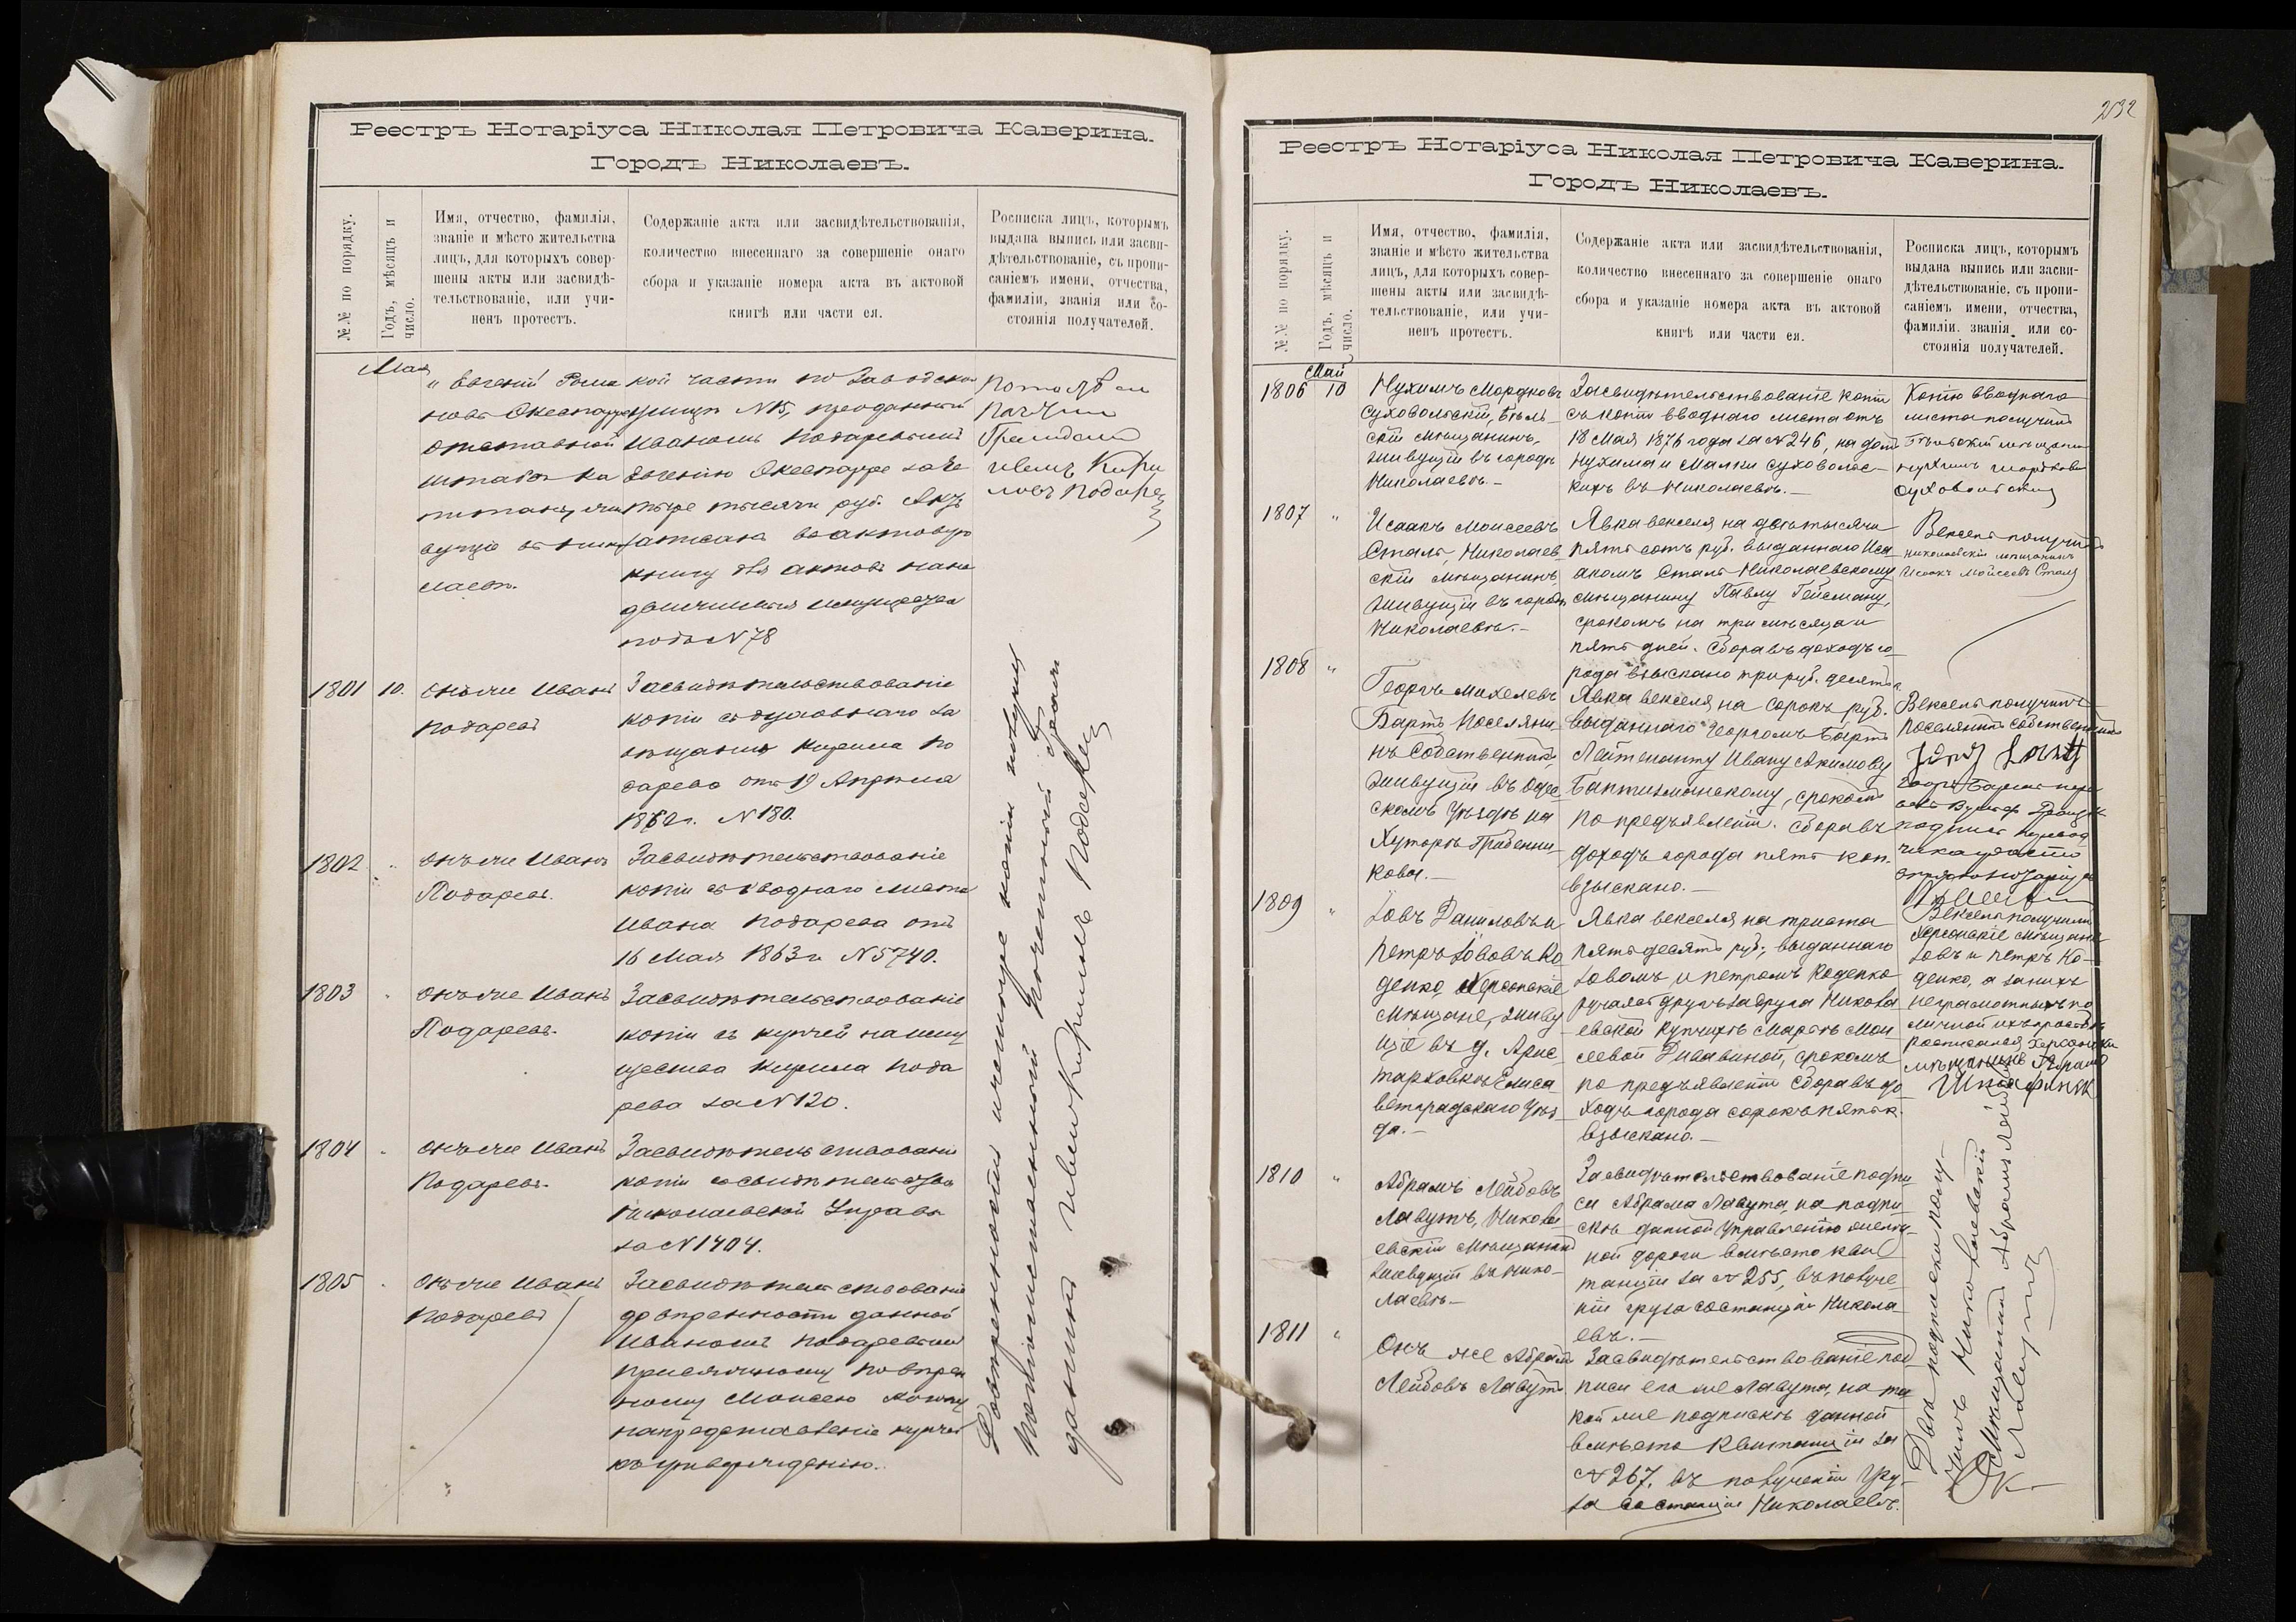 Реестръ Нотаріуса Николая Петровича Каверина.
Городъ Николаевъ.
№№ по порядку.
Годъ, мѣсяцъ и
число.
Имя, отчество, фамилія,
званіе и мѣсто жительства
лицъ, для которыхъ совер-
шены акты или засвидѣ-
тельствованіе, или учи-
ненъ протестъ.
Содержаніе акта или засвидѣтельствованія,
количество внесеннаго за совершеніе онаго
сбора и указаніе номера акта въ актовой
книгѣ или части ея.
Росписка лицъ, которымъ
выдана выпись или засви-
дѣтельствованіе, съ пропи-
саніемъ имени, отчества,
фамиліи, званія или со-
стоянія получателей.
Мая
" Евгеній
отставной
кой части по Заводской
улицѣ №15, проданный
Иваномъ Подаревымъ
Евгенію
тыре тысячи руб. Актъ
записанъ въ актовую
книгу для актовъ на не
движимыя имущества
подъ №78
Почетный
Гражданинъ
Иванъ Кири
ловъ Подарев
1801 10.
Онъ же Иванъ
Подаревъ
Засвидѣтельствованіе
копіи съ духовнаго за
вѣщанія Кирила По
дарева отъ 19 Апрѣля
1862г. №180.
1802 "
Онъ же Иванъ
Подаревъ.
Засвидѣтельствованіе
копіи съ вводнаго листа
Ивана Подарева отъ
16 Мая 1863г. №5740.
1803 "
Онъ же Иванъ
Подаревъ.
Засвидѣтельствованіе
копіи съ купчей на иму
щество Кирила Пода
рева за №120.
1804 "
Онъ же Иванъ
Подаревъ.
Засвидѣтельствованіе
копіи со свидѣтельства
Николаевской Управы
за №1404.
1805 "
Онъ же Иванъ
Подаревъ
Засвидѣтельствованіе
довѣренности данной
Иваномъ Подаревымъ
присяжному повѣрен
ному Моисею
на представленіе купчей
къ утвержденію.
Довѣренность и четыре копіи получилъ
Потомственный Почетный Граж
данинъ Иванъ Кириловъ Подарев
232
Реестръ Нотаріуса Николая Петровича Каверина.
Городъ Николаевъ.
№№ по порядку.
Годъ, мѣсяцъ и
число.
Имя, отчество, фамилія,
званіе и мѣсто жительства
лицъ, для которыхъ совер-
шены акты или засвидѣ-
тельствованіе, или учи-
ненъ протестъ.
Содержаніе акта или засвидѣтельствованія,
количество внесеннаго за совершеніе онаго
сбора и указаніе номера акта въ актовой
книгѣ или части ея.
Росписка лицъ, которымъ
выдана выпись или засви-
дѣтельствованіе, съ пропи-
саніемъ имени, отчества,
фамиліи, званія или со-
стоянія получателей.
Май
1806 10
Нухимъ Мордковъ
Суховольскій, Бѣль
скій мѣщанинъ,
живущій въ городѣ
Николаевѣ.-
Засвидѣтельствованіе копіи
съ копіи вводнаго листа отъ
18 Мая 1876 года за №246, на домъ
Нухима и Малки Суховольс-
кихъ въ Николаевѣ.-
Копію вводнаго
листа получилъ
Бѣльскій мѣщанинъ
Нухимъ Мордковъ
Суховольскій
1807 "
Исаакъ Моисеевъ
Сталь, Николаев
скій мѣщанинъ,
живущій въ городѣ
Николаевѣ.-
Явка векселя на двѣ тысячи
пять сотъ руб. выданнаго Иса
акомъ Сталь Николаевскому
мѣщанину Павлу Гейсману,
срокомъ на три мѣсяца и
пять дней. Сбора въ доходъ го
рода взыскано три руб. десять к.
Вексель получилъ
николаевскій мѣщанинъ
Исаакъ Мойсеевъ Сталь
1808 "
Георгъ Михелевъ
Бартъ, Поселяни
нъ Собственникъ
живущій въ Одес
скомъ Уѣздѣ на
Хуторѣ Гребенни
кова.-
Явка векселя на сорокъ руб.
выданнаго Георгомъ Бартъ
Лейтенанту Ивану Акимову
Баптизманскому, срокомъ
по предъявленіи. Сбора въ
доходъ города пять коп.
взыскано.-
Вексель получилъ
Поселянинъ Собственникъ
1809 "
Іовъ Даниловъ и
Петръ Іововъ Ко
денко, Херсонскіе
мѣщане, живу
щіе въ д. Арис
тарховкѣ Елиса
ветградскаго Уѣз
да.-
Явка векселя на триста
пятьдесятъ руб., выданнаго
Іовомъ и Петромъ Коденко
ручаясь другъ за друга Никола
евской купчихѣ Марѳѣ Мои
сеевой Дивавиной, срокомъ
по предъявленіи сбора въ до
ходъ города сорокъ пять к.
взыскано.-
Вексель получили
Херсонскіе мѣщане
Іовъ и Петръ Ко-
денко, а за нихъ
неграмотныхъ по
личной ихъ просьбѣ
росписался Херсонскій
мѣщанинъ
1810 "
Абрамъ Лейбовъ
Лавутъ, Никола
евскій мѣщанинъ
живущій въ Нико-
лаевѣ-
Засвидѣтельствованіе подпи
си Абрама Лавута, на подпи
скѣ данной Управленію желѣз-
ной дороги вмѣсто кви
танціи за №255, въ получе
ніи груза со станціи Никола
евъ.-
1811 "
Онъ же Абрамъ
Лейбовъ Лавутъ
Засвидѣтельствованіе под
писи его же Лавута, на та
кой же подпискѣ данной
вмѣсто Квитанціи за
№267, въ полученіи гру-
за со станціи Николаевъ.
Двѣ подписки полу-
чилъ Николаевскій
Мѣщанинъ Абрамъ Лейбовъ
Лавутъ